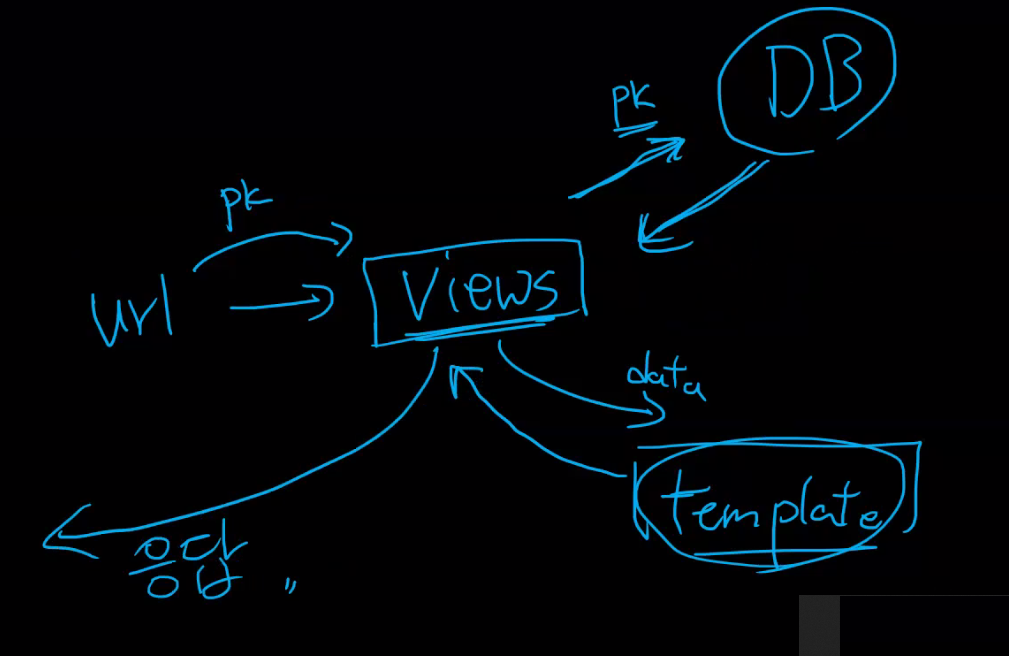 DB
pk
pk
url
views
data
template
응답